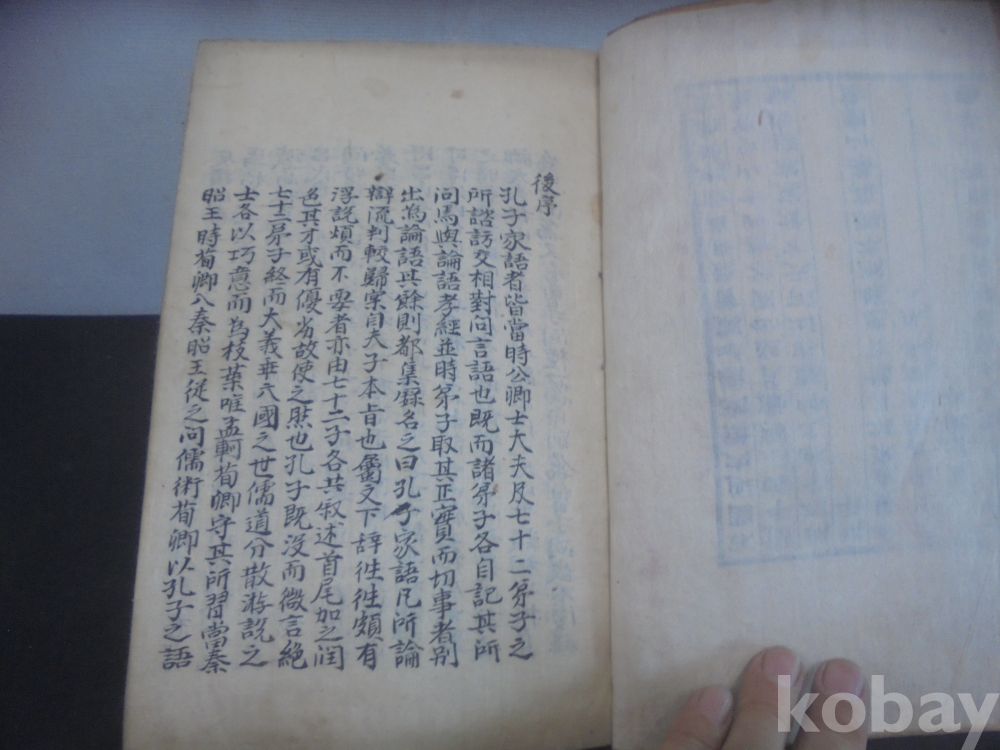 後序
孔子家語者皆當時公卿士大夫及七十二弟子之
所諮訪交相對問言語也既而諸弟子各自記其所
问焉與論語孝經並時弟子取其正實而切事者别
出為論語其餘則都集録名之曰孔子家語凡所論
辯流判較歸实自夫子本旨也屬文下辞徃徃頗有
浮説煩而不要者亦由七十二子各共叙述首尾加之润
色其才或有優劣故使之然也孔子既没而微言絶
七十二弟子終而大義乖六國之世儒道分散游説之
士各以巧意而為枝葉唯孟軻荀卿守其所習當秦
昭王時荀卿入秦昭王從之问儒術荀卿以孔子之語
kobay